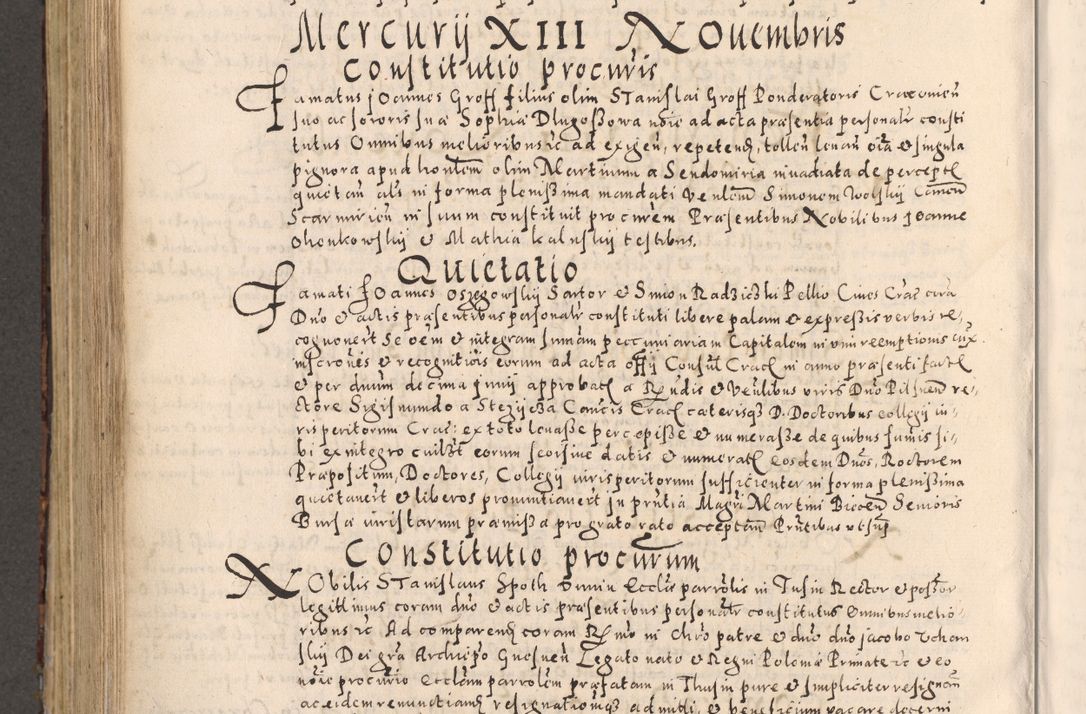 Mercurij XIII Nouembris
Constitutio procuris
Famatus Joannes Groff filius olim Stanislai Groff Ponderatoris Cracouien
suo ac sororis suæ Sophiæ Dlugoßowa noie ad acta præsentia personalr consti
tutus Omnibus melioribus ic ad exigen, repetend, tollen leuan oia & singula
pignora apud honlem olim Martinum a Sendomiria inuadiata de percept
quietan als in forma plenißima mandati Venlem Simonem Wolskij Canon
Scarmirien in suum constituit procurem Præsentibus Nobilibus Joanne
Ohenkowskij & Mathia kaluskij testibus.
Quietatio
Famati Joannes Ozegowskij Sartor & Simon Radziczki Pellio Ciues Crac cora
Dno & actis præsentibus personalr constituti libere palam & expreßis verbis re-
cognouert Se oem & integram sumam peccuniariam Capitalem in vim reemptionis
inscrones & recognitiois eorum ad acta offij Consul Crac in anno præsenti fact
& per dnum decima Junij approbat a Rndis & Venlibus viris Dno Pilsnen re-
ctore Sigismundo a Stezijcza Cancis Crac caterisq D. Doctoribus collegij iu-
risperitorum Crac: ex toto leuaße percepiße & numeraße de quibus sumis si-
bi ex integro cuilbt eorum seorsiue datis & numerat eosdem Dnos, Roctorem
Præpositum, Doctores, Collegij iurisperitorum sufficienter in forma plenißima
quietauert & liberos pronuntiauert in prntia Magri Martini Biecen Senioris
Bursæ iuristarum præmißa pro grato rato acceptan Prntibus vt sup
Constitutio procurum
Nobilis Stanislaus Spoth Ecclæ parrolis in Tusin Rector & poßor
legittimus coram dno & actis præsentibus personalr constitutus Omnibus melio-
ribus ic Ad comparend coram Rmo in Chro patre & dno dno Jacobo Vchan
skij Dei gra Archiepo Gnesnen Legato nato & Regni Poloniæ Primate ic & eo
noie procurio Ecclam parrolem præfatam in Thusin pure & simpliciter resignan
ac eidem renunctiand resignationemq admitti, & beneficium vacare decerni